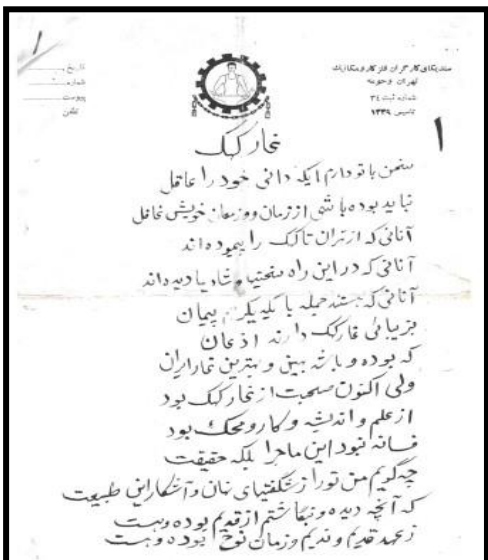 ۱
سندیکای کارگران فلزکار و مکانیک
تهران و حومه
شماره ثبت ۳۴
تاسیس ۱۳۳۹
تاریخ
شماره
پیوست
تلفن
۱
غار کهک
سخن با تو دارم ایکه دانی خود را عاقل
نباید بوده باشی از زمان و خویش غافل
آنانی که از تهران تا کهک را پیموده اند
آنانی که در این راه سختیها و شادیها دیده اند
آنانی که هستند جمله با یکدیگر هم پیمان
بزیبائی غار کهک دارند اذعان
که بوده و باشد بهین و بهترین غار ایران
ولی اکنون صحبت از غار کهک بود
از علم و اندیشه و کار و محک بود
فسانه نبود این ماجرا بلکه حقیقت
چه گویم من تو را از شگفتیهای نهان و آشکار این طبیعت
که آنچه دیده و نگاشتم از قدیم بوده و هست
ز عهد قدیم و ندیم و زمان نوح بوده و هست